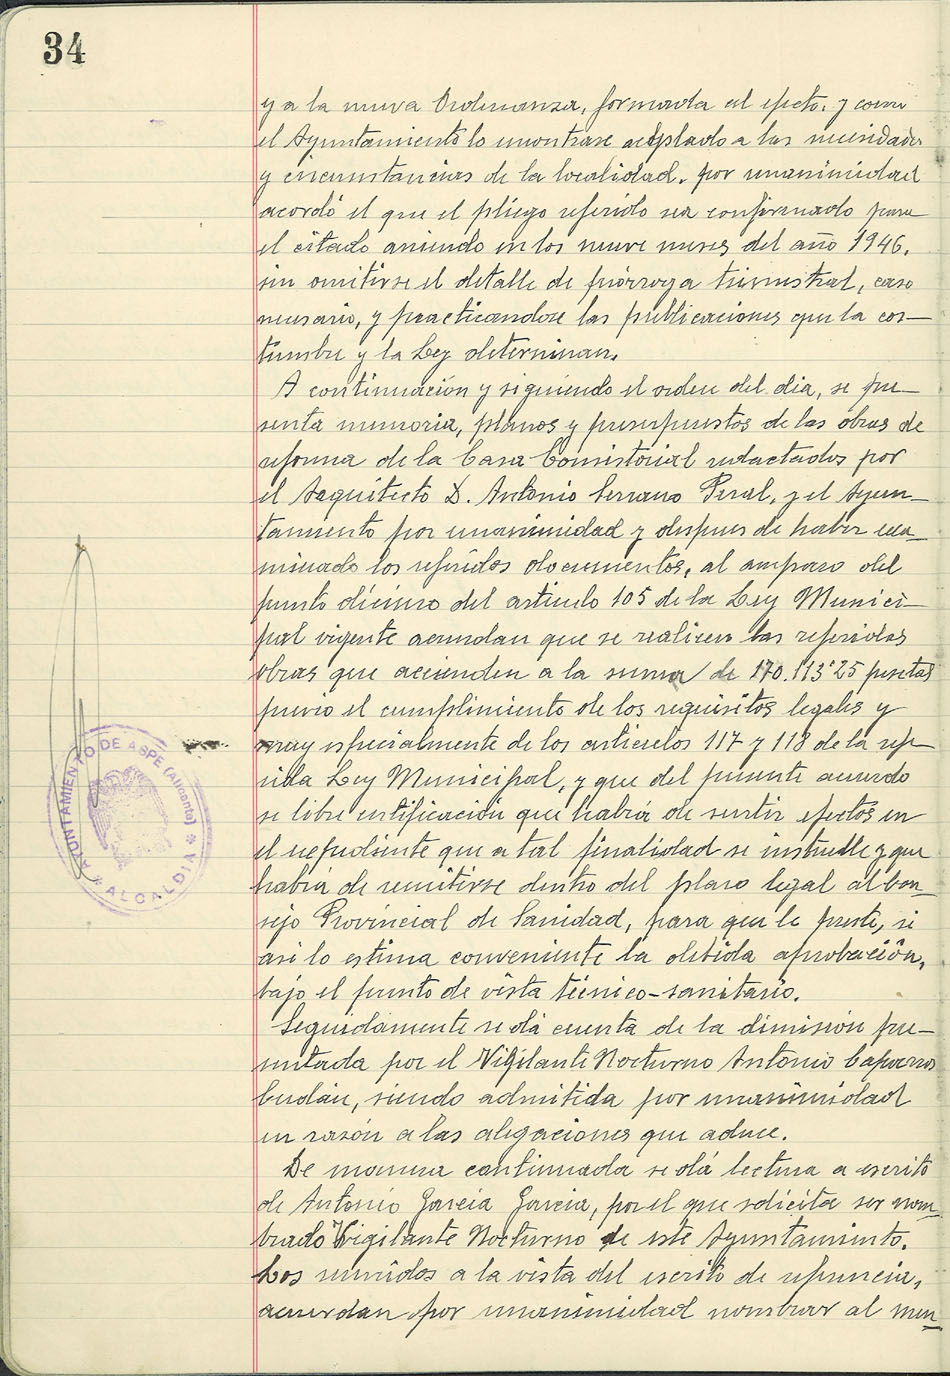 34
y a la nueva Ordenanza, formada al efecto, y como
el Ayuntamiento lo encontrase adaptado a las necesidades
y circunstancias de la localidad, por unanimidad
acordó el que el pliego referido sea confirmado para
el citado arriendo en los nueve meses del año 1946,
sin omitirse el detalle de prórroga trimestral, caso
necesario, y practicandose las publicaciones que la cos-
tumbre y la Ley determinan.
A continuación y siguiendo el orden del dia, se pre-
senta memoria, planos y presupuestos de las obras de
reforma de la Casa Consistorial redactados por
el Arquitecto D. Antonio Serrano Peral, y el Ayun-
tamiento por unanimidad y despues de haber exa-
minado los referidos documentos, al amparo del
punto décimo del articulo 105 de la Ley Munici-
pal vigente acuerdan que se realicen las referidas
obras que accienden a la suma de 170.113'25 pesetas
previo el cumplimiento de los requisitos legales y
muy especialmente de los articulos 117 y 118 de la refe-
rida Ley Municipal, y que del presente acuerdo
se libre certificación que habrá de surtir efectos en
el expediente que a tal finalidad se instrulle y que
habrá de remitirse dentro del plazo legal al Con-
sejo Provincial de Sanidad, para que le preste, si
asi lo estima conveniente la debida aprobación,
bajo el punto de vista técnico-sanitario.
Seguidamente se dá cuenta de la dimisión pre-
sentada por el Vigilante Nocturno Antonio Caparros
Cerdán, siendo admitida por unanimidad
en razón a las alegaciones que aduce.
De manera continuada se dá lectura a escrito
de Antonio García García, por el que solicita ser nom-
brado Vigilante Nocturno de este Ayuntamiento.
Los reunidos a la vista del escrito de referencia,
acuerdan por unanimidad nombrar al men-
AYUNTAMIENTO DE ASPE (Alicante)
* ALCALDIA *